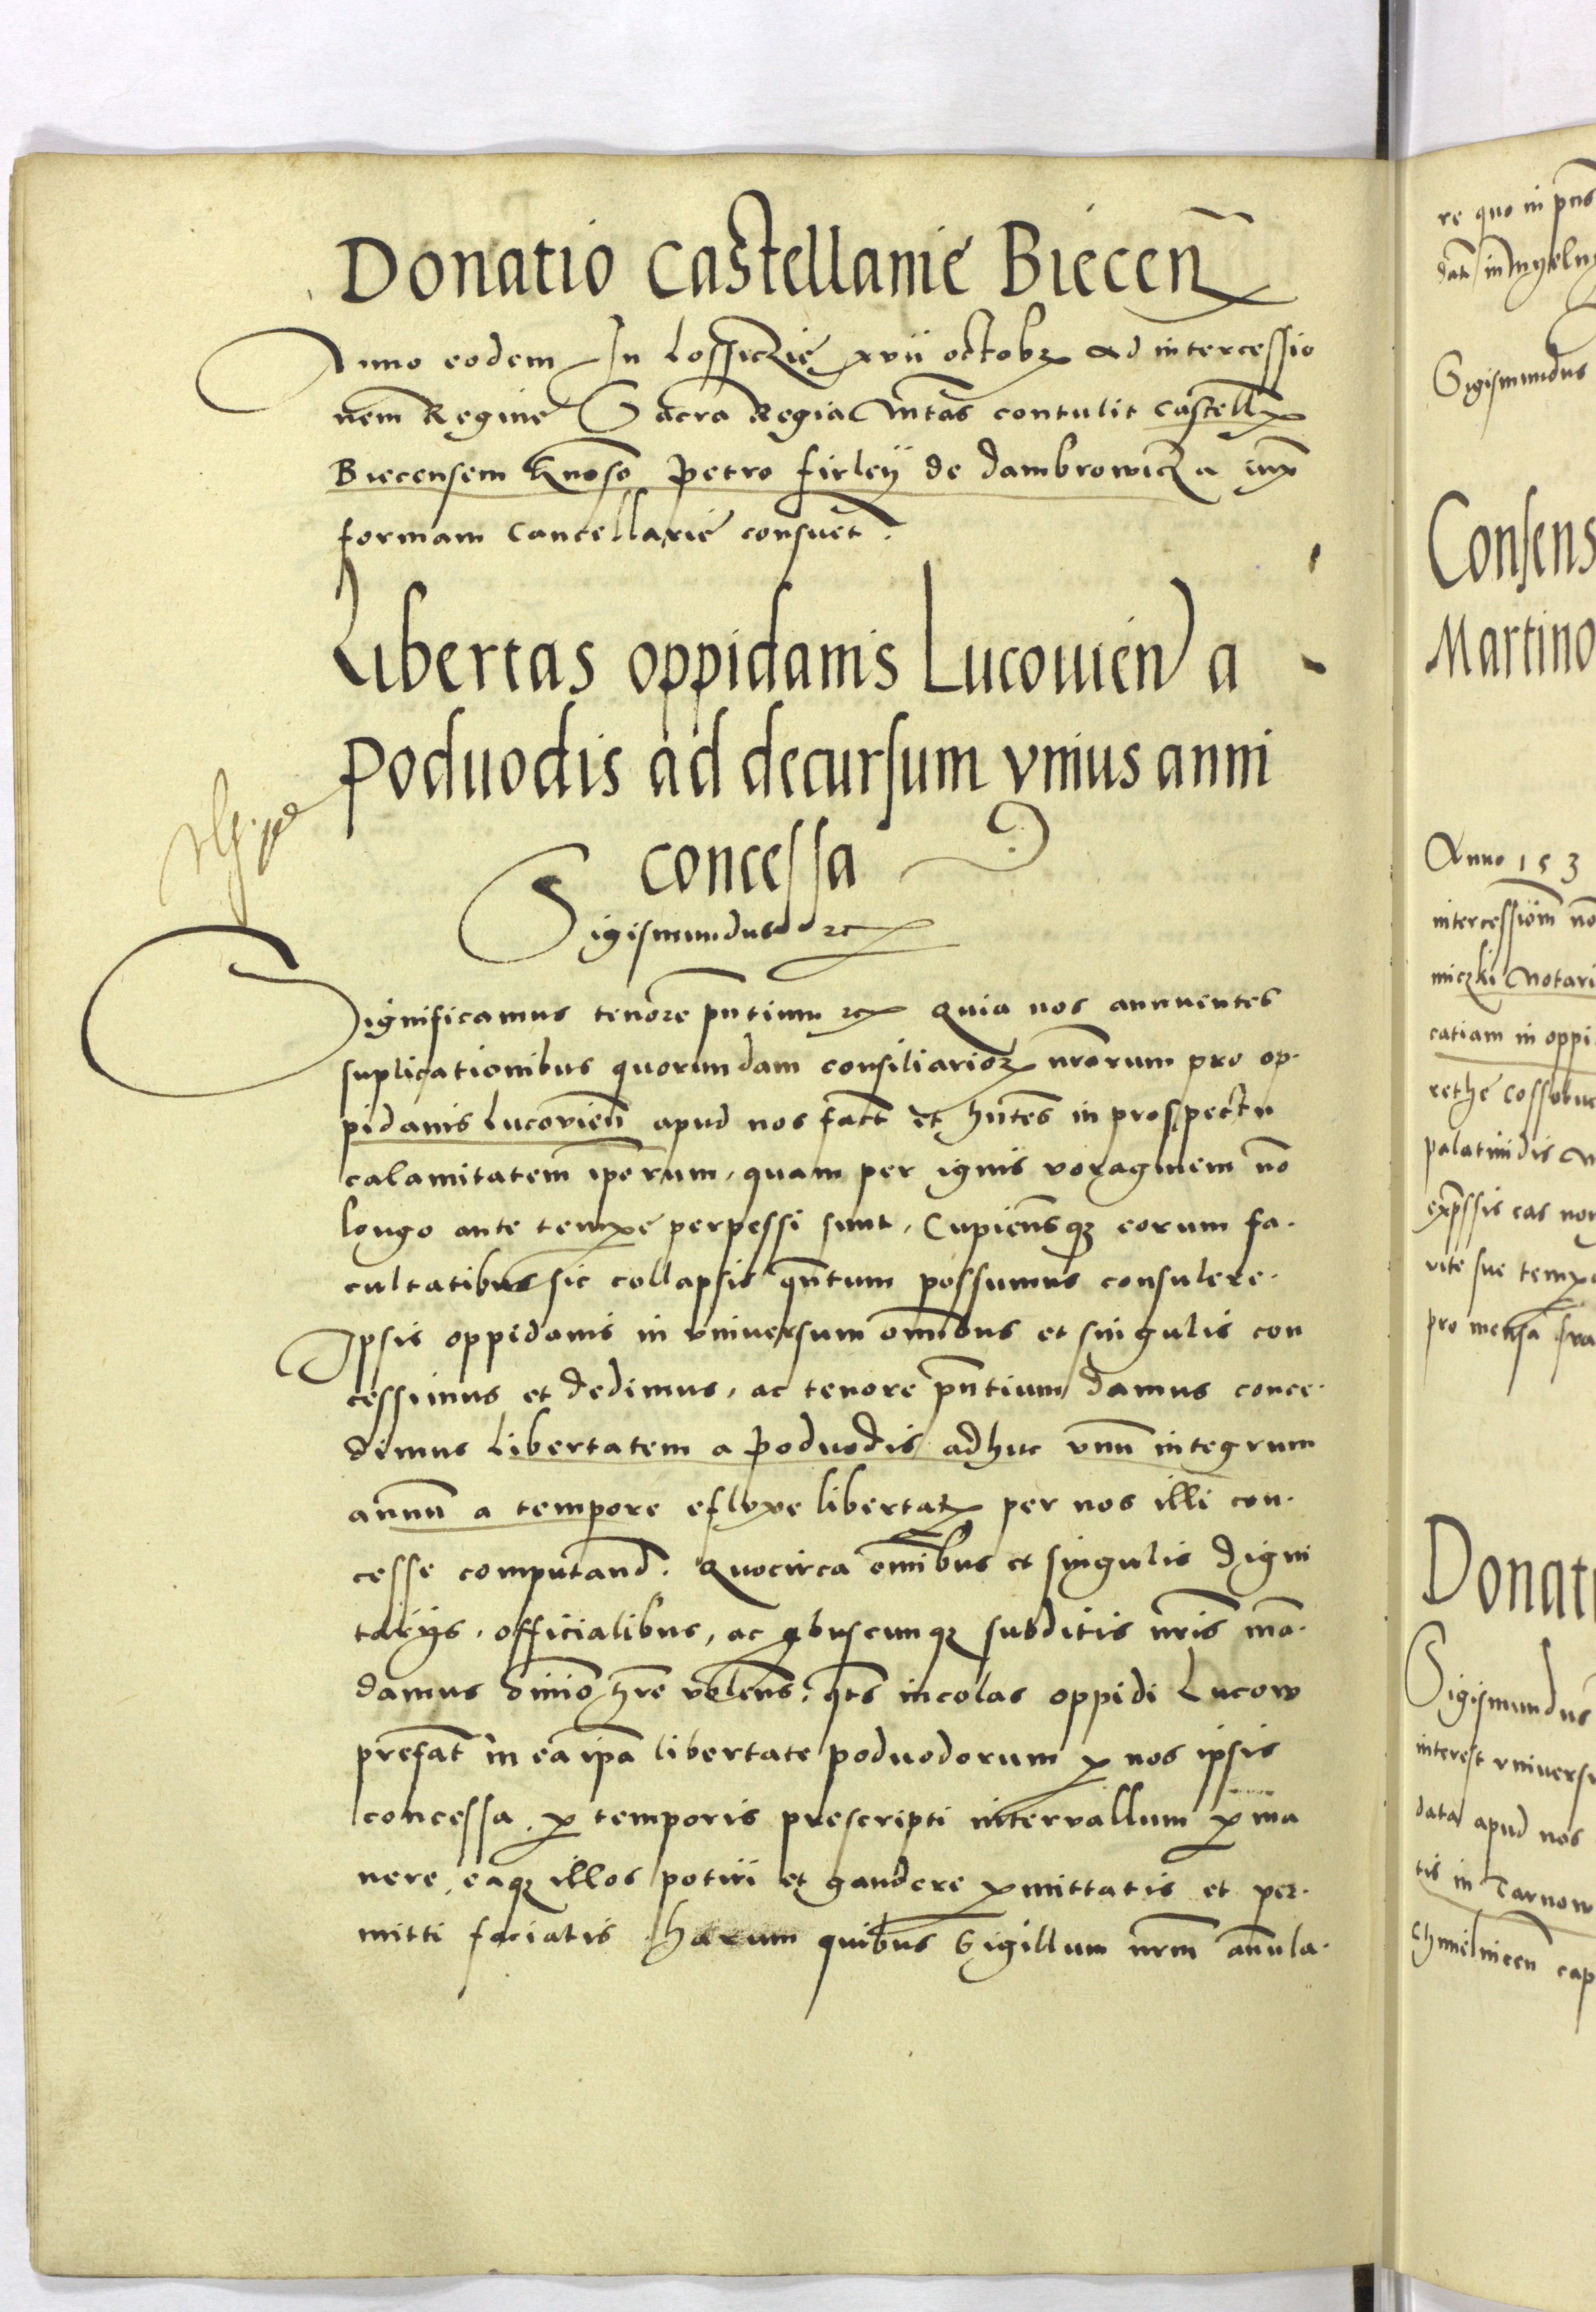 Donatio Castellanie Biecen
Anno eodem In Lossiczie xvii octobr Ad intercessio
nem Regine Sacra Regia Mtas contulit castell
Biecensem Gnoso Petro firleÿ de dambrowicza iux
formam cancellarie consuet.
Libertas oppidanis Lucouien a
Poduodis ad decursum vnius anni
concessa
Sigismundus rc
Significamus tenore pntium rc Quia nos annuentes
suplicationibus quorundam consiliarior nrorum pro op-
pidanis Lucovien apud nos fact et hntes in prospectu
calamitatem iporum, quam per ignis voraginem no
longo ante tempe perpessi sunt, Cupiensq eorum fa-
cultatibus sic collapsis qntum possumus consulere.
Ipsis oppidanis in vniversum omibus et singulis con
cessimus et dedimus, ac tenore pntium damus conce-
dimus Libertatem a poduodis adhuc vnu integrum
annu a tempore efluxe libertat per nos illi con-
cesse computand. Quocirca omibus et singulis digni
tarijs, officialibus, ac qbuscumq subditis nris ma-
damus omio hre volens, qts incolas oppidi Lucow
prefat in ea ipa libertate poduodorum p nos ipsis
concessa, p temporis prescripti intervallum p ma
nere, eaq illos potiri et gaudere pmittatis et per-
mitti faciatis. harum quibus Sigillum nrm annula-
re quo in pns
dat in
Sigismundus
Consens
Martino
Anno 153
intercessiom no
miczki Notari
catiam in oppi
rethe
palatinidis
expssis eas non
vite sue temp
pro mensa
Donati
Sigismundus
interest vniversi
data apud nos
tis in Tarnow
Chmielnicen cap